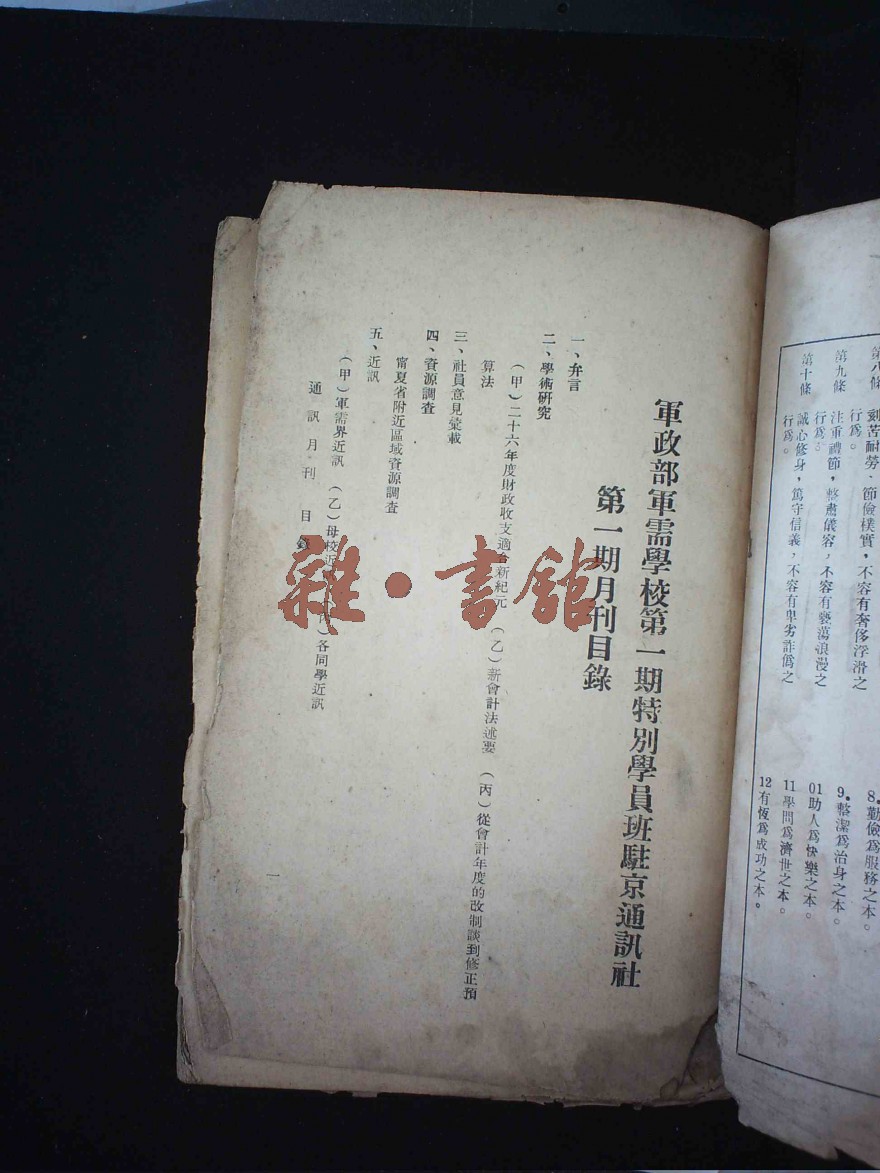 第八條
刻苦耐勞，節儉樸實，不容有奢侈浮滑之
行爲。
第九條
注重禮節，整肅儀容，不容有褻蕩浪漫之
行爲。
第十條
誠心修身，篤守信義，不容有卑劣詐僞之
行爲。
8.勤儉爲服務之本。
9.整潔爲治身之本。
01助人爲快樂之本。
11學問爲濟世之本。
12有恆爲成功之本。
軍政部軍需學校第一期特別學員班駐京通訊社
第一期月刊目錄
一、弁言
二、學術研究
（甲）二十六年度財政收支適合新紀元 （乙）新會計法述要 （丙）從會計年度的改制談到修正預
算法
三、社員意見彙載
四、資源調查
甯夏省附近區域資源調查
五、近訊
（甲）軍需界近訊 （乙）母校近 各同學近訊
通訊月刊 目錄
一
雜·書館